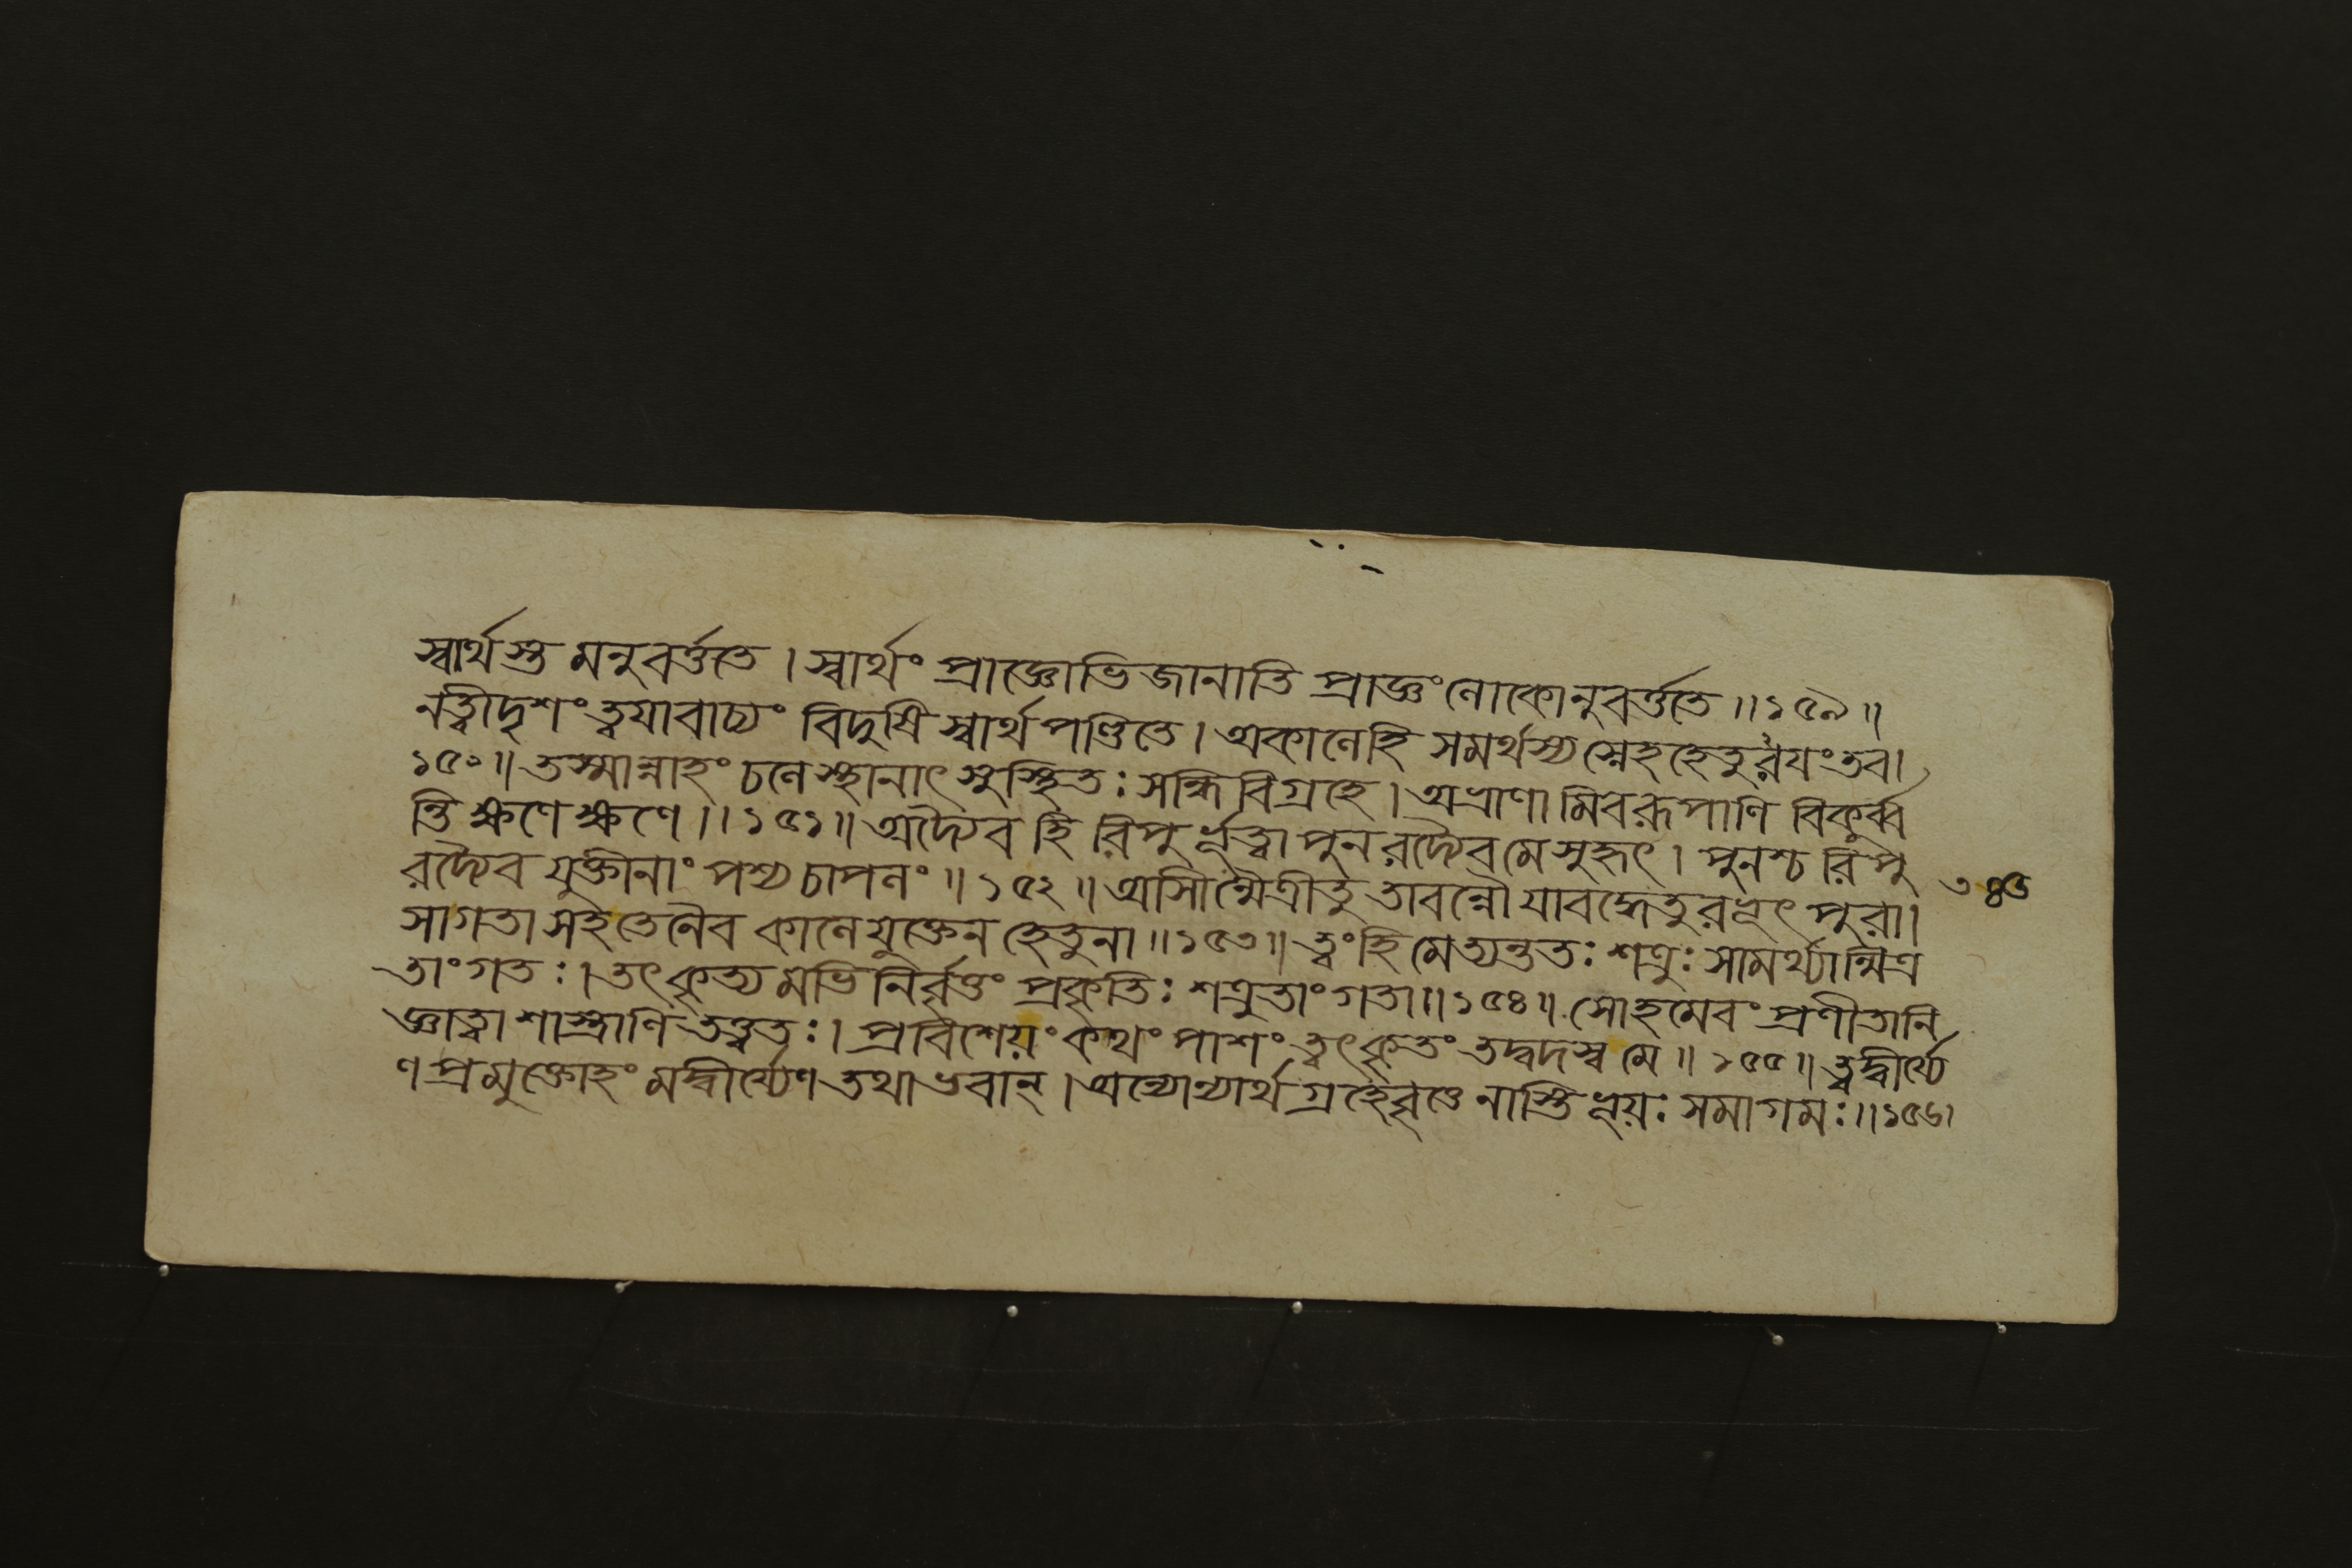 স্বার্থস্তু মনুবর্ত্ততে । স্বার্থং প্রাজ্ঞোভিজানাতি প্রাজ্ঞং লোকোনুবর্ত্ততে ॥ ১৫৯ ॥
নত্বীদৃশং ত্বয়াবাচ্যং বিদুষি স্বার্থপণ্ডিতে । অকালেহি সমর্থস্য স্নেহহেতুরয়ং তব ।
১৫০ ॥ তস্মান্নাহং চলে স্থানাৎ সুস্থিতঃ সন্ধিবিগ্রহে । অভ্রাণামিবরূপাণি বিকুর্ব্ব
ন্তি ক্ষণে ক্ষণে ॥ ১৫১ ॥ অদ্যৈব হি রিপুর্ভূত্বা পুনরদ্যৈবমে সুহৃৎ । পুনশ্চ রিপু
রদ্যৈব যুক্তীনাং পশ্য চাপলং ॥ ১৫২ ॥ আসীন্মৈত্রীতু তাবন্নৌ যাবদ্ধেতুরভূৎ পুরা ।
৩৪৩
সাগতা সহতেনৈব কালেযুক্তেন হেতুনা ॥ ১৫৩ ॥ ত্বংহি মেত্যন্ততঃ শত্রুঃ সামর্থ্যান্মিত্র
তাংগতঃ । তৎকৃত্যমভিনির্বৃত্তং প্রকৃতিঃ শত্রুতাংগতা ॥ ১৫৪ ॥ সোহমেবং প্রণীতানি
জ্ঞাত্বা শাস্ত্রাণি তত্ত্বতঃ । প্রবিশেয়ং কথং পাশং ত্বৎকৃতং তদ্বদস্ব মে ॥ ১৫৫ ॥ ত্বদ্বীর্য্যে
ণ প্রমুক্তোহং মদ্বীর্য্যেণ তথা ভবান্ । অন্যোন্যার্থগ্রহেবৃত্তে নাস্তি ভূয়ঃ সমাগমঃ ॥ ১৫৬ ।